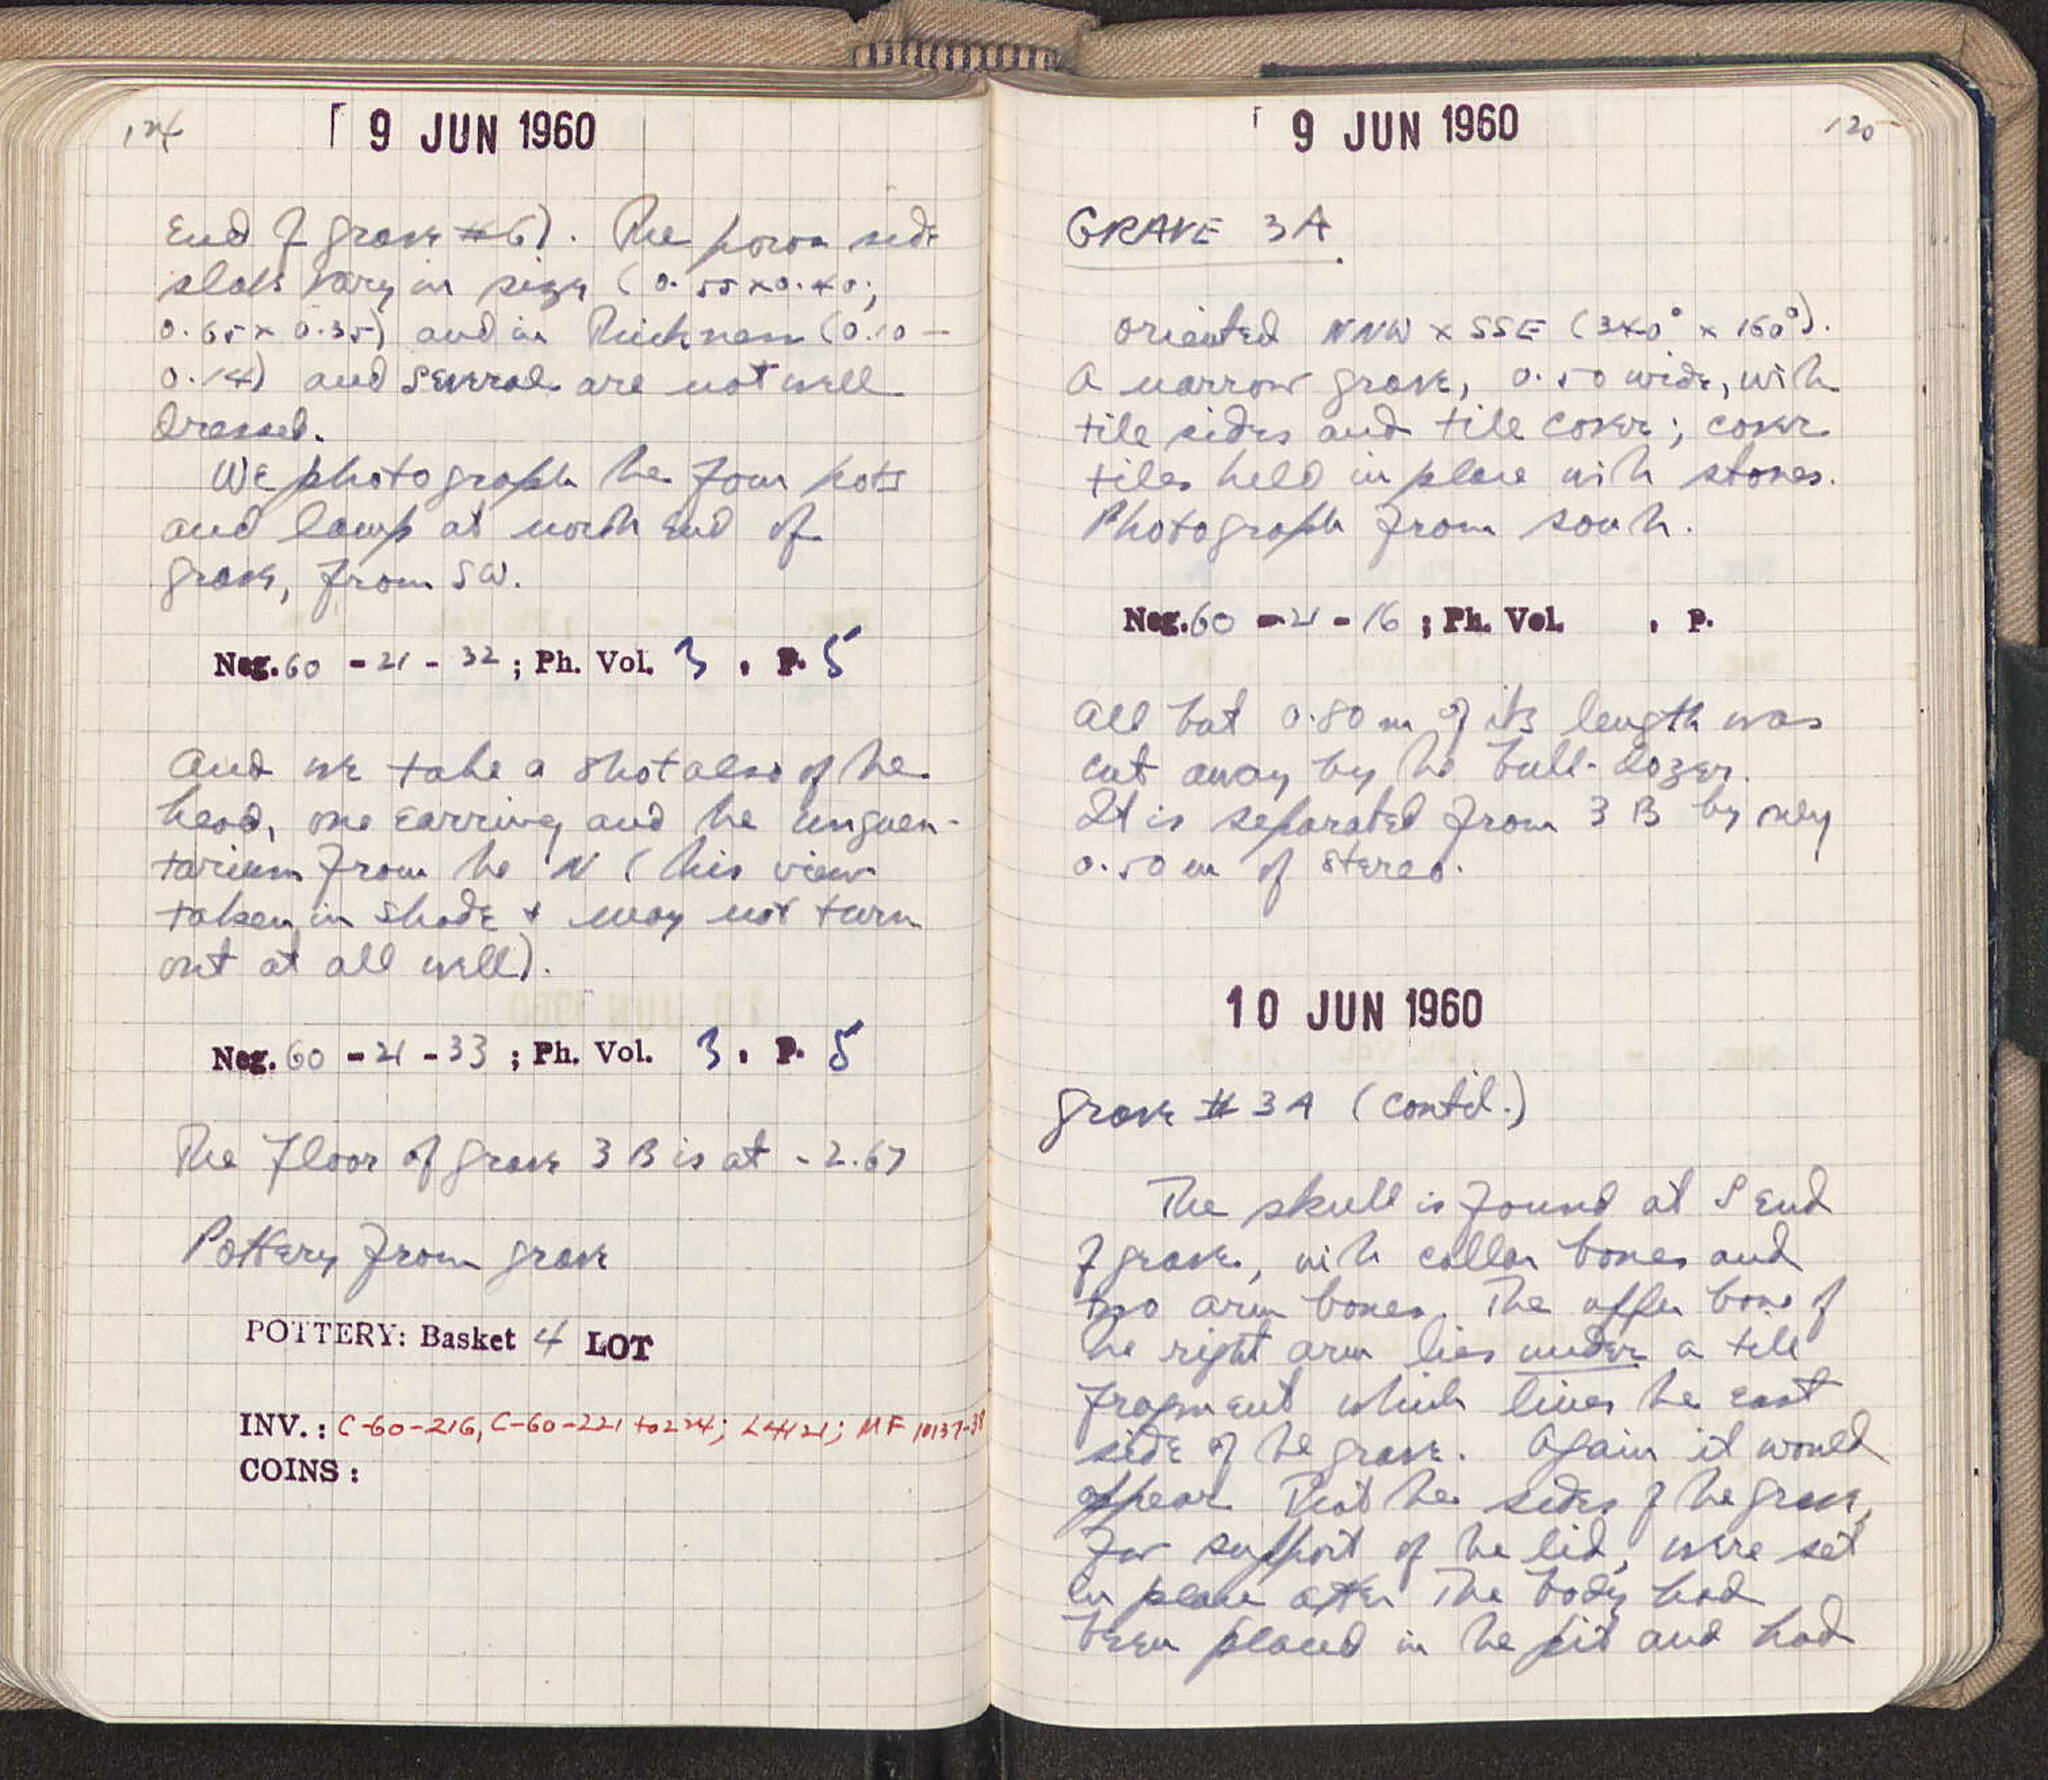 124
9 JUN 1960
End of grave #6). The poros side
slabs vary in size (0.55x0.40;
0.65x0.35) and in thickness (0.10-
0.14) and several are not well
dressed.
We photograph the four pots
and lamp at north end of
grave, from SW.
Neg. 60 - 21 - 32 ; Ph. Vol. 3 , P. 5
And we take a shot also of the
head, one earring and the unguen-
tarium from the N (this view
taken in shade + may not turn
out at all well).
Neg. 60 - 21 - 33 ; Ph. Vol. 3 , P. 5
The floor of grave 3B is at -2.67
Pottery from grave
POTTERY: Basket 4 LOT
INV.: C-60-216, C-60-221 to 224; L4121; MF 10137-38
COINS:
9 JUN 1960
125
GRAVE 3A.
Oriented NNW x SSE (340° x 160°).
A narrow grave, 0.50 wide, with
tile sides and tile cover; cover
tiles held in place with stones.
Photograph from south.
Neg. 60 - 21 - 16 ; Ph. Vol. , P.
All but 0.80 m of its length was
cut away by the bull-dozer.
It is separated from 3B by only
0.50 m of stereo.
10 JUN 1960
Grave #3A (cont'd.)
The skull is found at S end
of grave, with collar bones and
two arm bones. The upper bone of
the right arm lies under a tile
fragment which lines the east
side of the grave. Again it would
appear that the sides of the grave,
for support of the lid, were set
in place after the body had
been placed in the pit and had